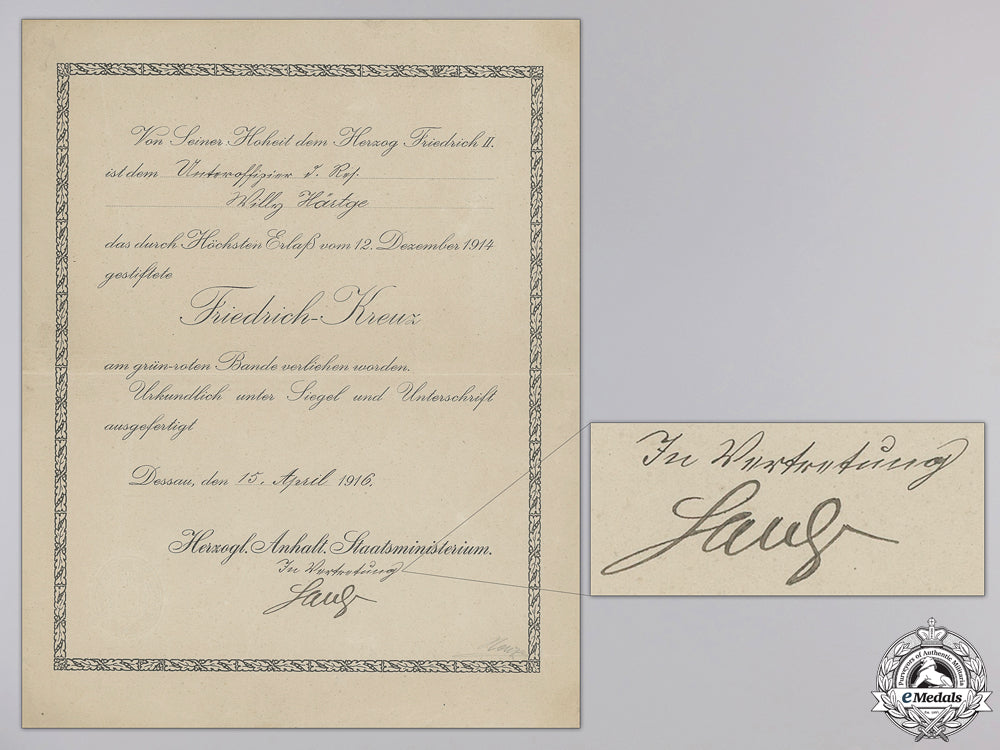 Von Seiner Hoheit dem Herzog Friedrich II.
ist dem Unteroffizier d. Res.
Willy Härtge
das durch Höchsten Erlaß vom 12. Dezember 1914
gestiftete
Friedrich-Kreuz
am grün-roten Bande verliehen worden.
Urkundlich unter Siegel und Unterschrift
ausgefertigt
Dessau, den 15. April 1916.
Herzogl. Anhalt. Staatsministerium.
In Vertretung
In Vertretung
Purveyors of Authentic Militaria
eMedals